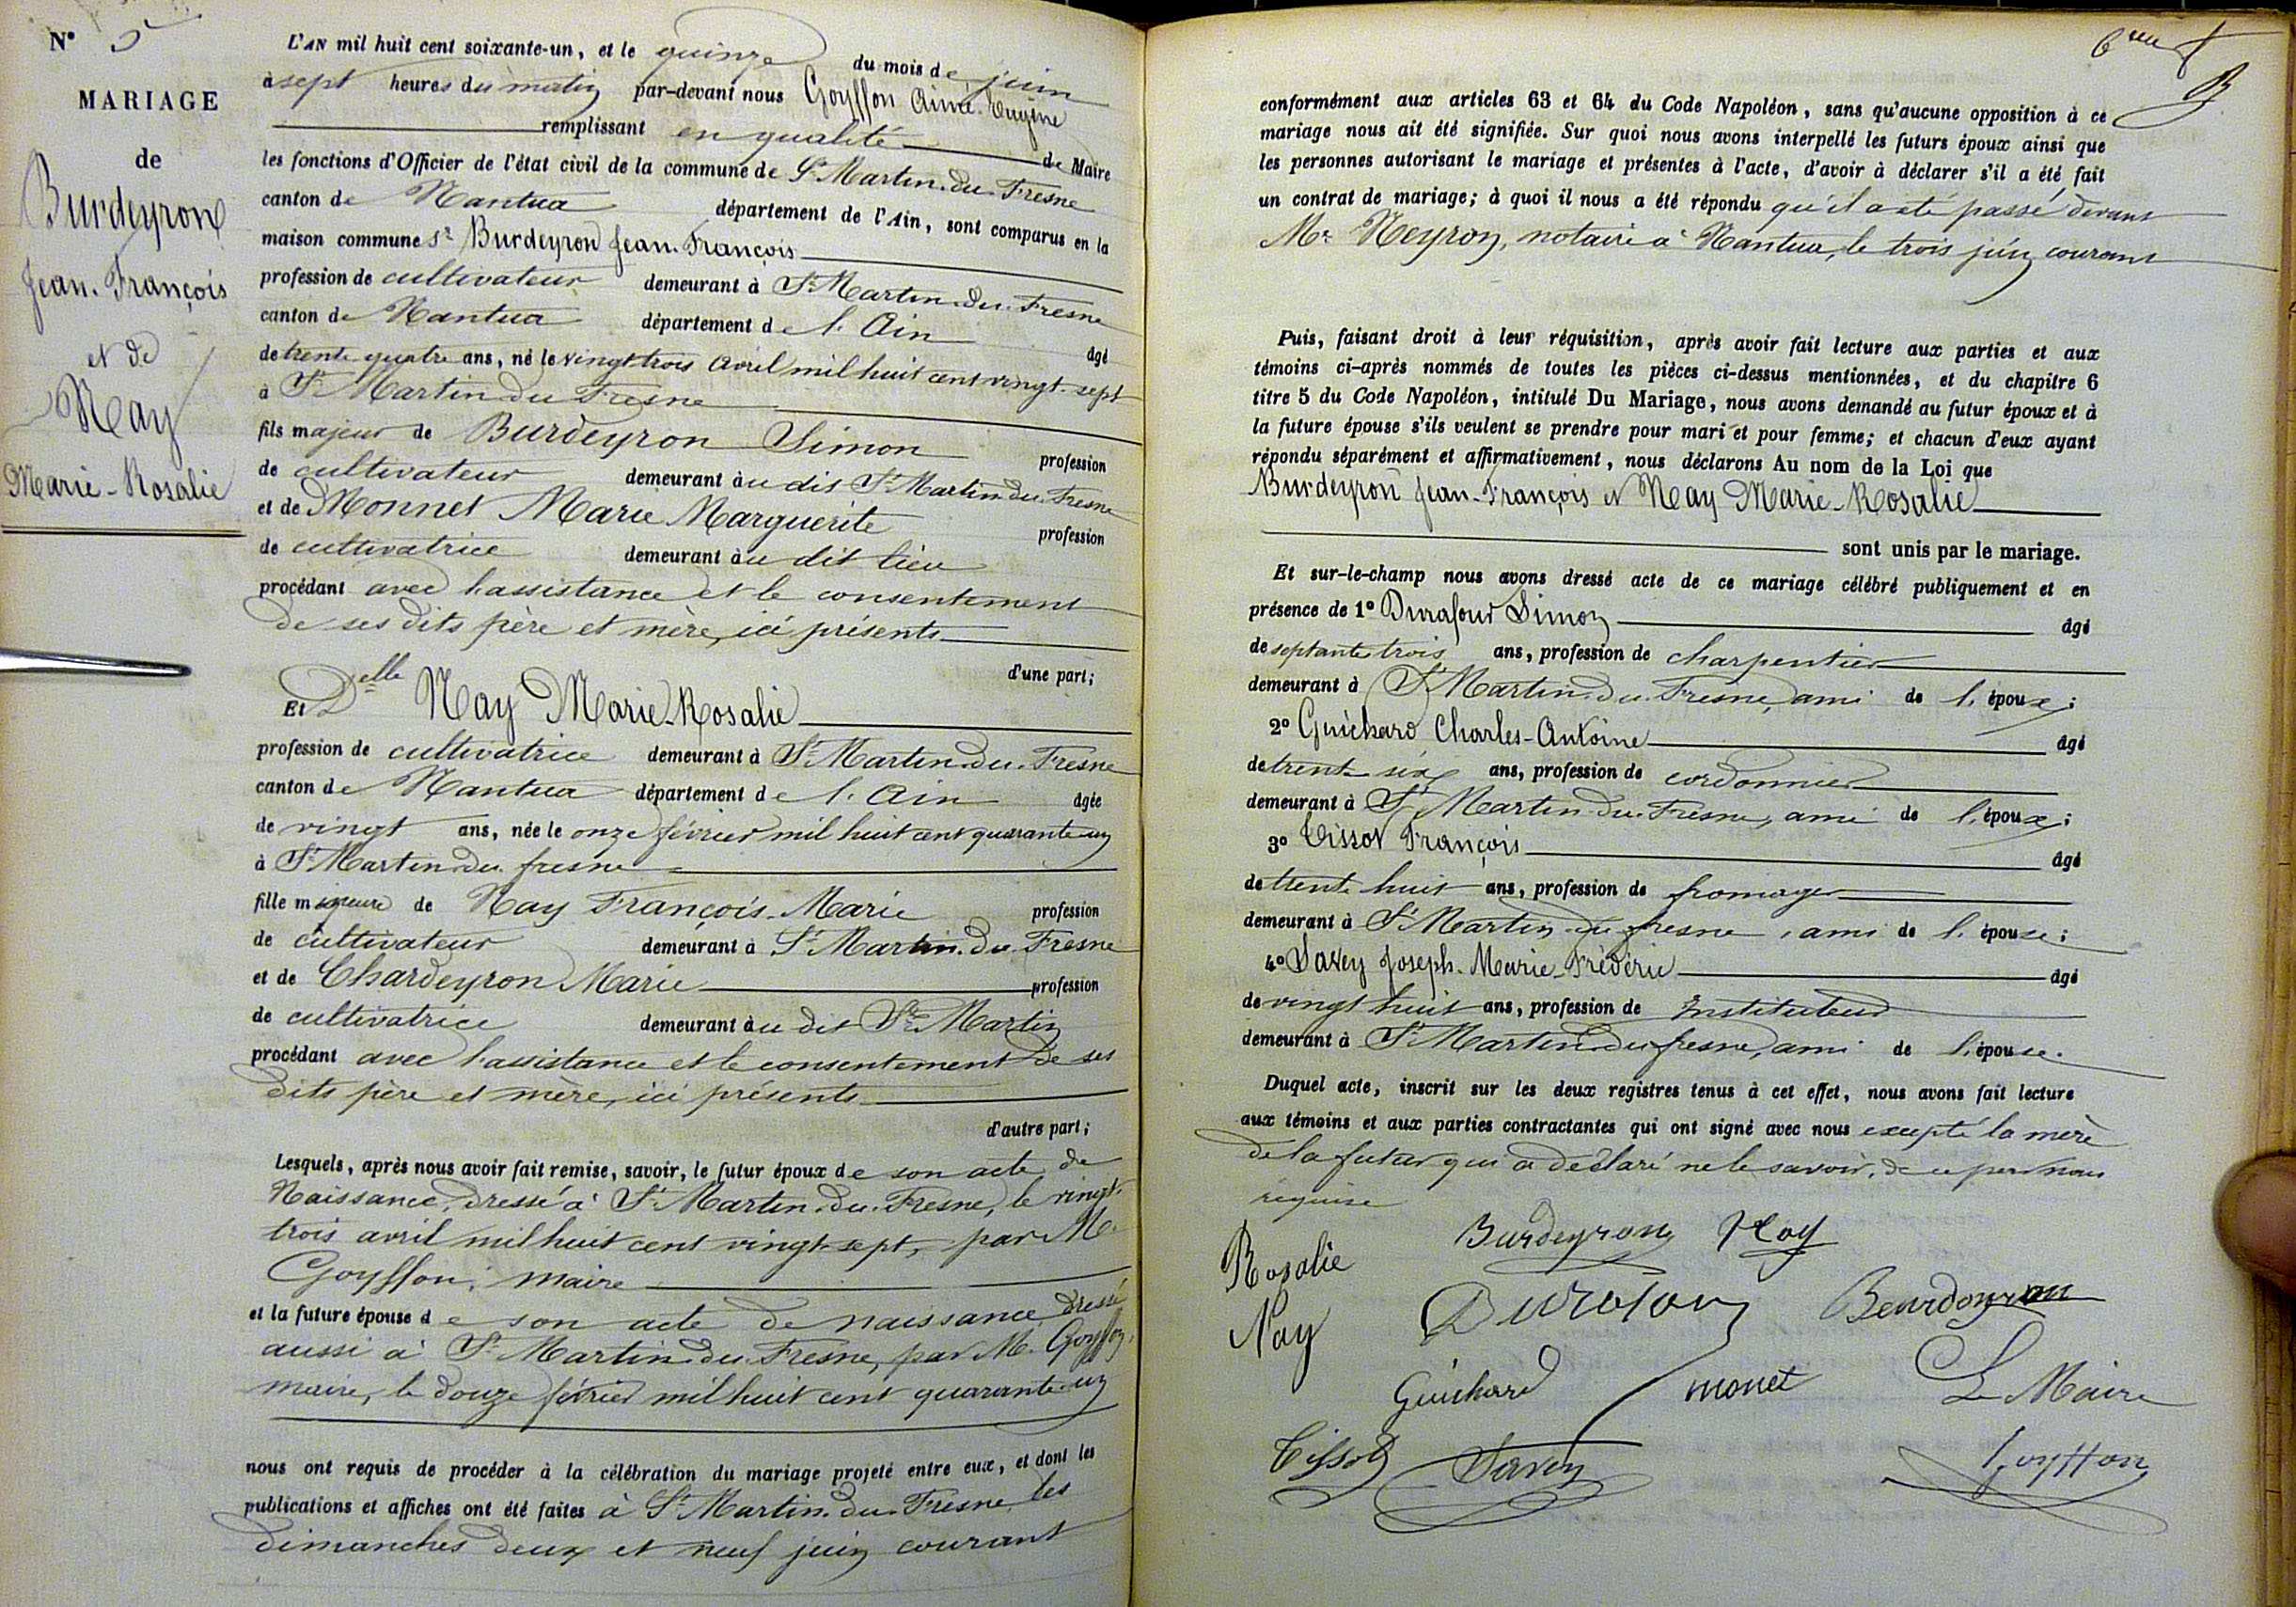 N° 5
MARIAGE
de
Burdeyron
Jean-François
et de
Nay
Marie-Rosalie
L'AN mil huit cent soixante-un, et le quinze du mois de juin
à sept heures du matin par-devant nous Goyffon Aimé-Eugène
remplissant en qualité de Maire
les fonctions d'Officier de l'état civil de la commune de St Martin-du-Fresne
canton de Nantua département de l'Ain, sont comparus en la
maison commune Sr Burdeyron Jean-François
profession de cultivateur demeurant à St Martin-du-Fresne
canton de Nantua département de l'Ain âgé
de trente quatre ans, né le vingt trois avril mil huit cent vingt-sept
à St Martin du Fresne
fils majeur de Burdeyron Simon profession
de cultivateur demeurant au dit St Martin-du-Fresne
et de Monnet Marie Marguerite profession
de cultivatrice demeurant au dit lieu
procédant avec l'assistance et le consentement
de ses dits père et mère, ici présents
d'une part;
Et Delle Nay Marie-Rosalie
profession de cultivatrice demeurant à St Martin-du-Fresne
canton de Nantua département de l'Ain âgée
de vingt ans, née le onze février mil huit cent quarante un
à St Martin-du-fresne
fille mineure de Nay François-Marie profession
de cultivateur demeurant à St Martin-du-Fresne
et de Chardeyron Marie profession
de cultivatrice demeurant au dit St Martin
procédant avec l'assistance et le consentement de ses
dits père et mère, ici présents
d'autre part;
Lesquels, après nous avoir fait remise, savoir, le futur époux de son acte de
Naissance, dressé à St Martin-du-Fresne, le vingt-
trois avril mil huit cent vingt-sept, par M.
Goyffon, maire
et la future épouse de son acte de naissance dressé
aussi à St Martin-du-Fresne, par M. Goyffon,
maire, le douze février mil huit cent quarante-un
nous ont requis de procéder à la célébration du mariage projeté entre eux, et dont les
publications et affiches ont été faites à St Martin-du-Fresne les
dimanches deux et neuf juin courant
6me
conformément aux articles 63 et 64 du Code Napoléon, sans qu'aucune opposition à ce
mariage nous ait été signifiée. Sur quoi nous avons interpellé les futurs époux ainsi que
les personnes autorisant le mariage et présentes à l'acte, d'avoir à déclarer s'il a été fait
un contrat de mariage; à quoi il nous a été répondu qu'il a été passé devant
Me Neyron, notaire à Nantua, le trois juin courant
Puis, faisant droit à leur réquisition, après avoir fait lecture aux parties et aux
témoins ci-après nommés de toutes les pièces ci-dessus mentionnées, et du chapitre 6
titre 5 du Code Napoléon, intitulé Du Mariage, nous avons demandé au futur époux et à
la future épouse s'ils veulent se prendre pour mari et pour femme; et chacun d'eux ayant
répondu séparément et affirmativement, nous déclarons Au nom de la Loi que
Burdeyron Jean-François et Nay Marie-Rosalie
sont unis par le mariage.
Et sur-le-champ nous avons dressé acte de ce mariage célébré publiquement et en
présence de 1° Durafour Simon âgé
de septante trois ans, profession de charpentier
demeurant à St Martin-du-Fresne, ami de l'époux;
2° Guichard Charles-Antoine âgé
de trente six ans, profession de cordonnier
demeurant à St Martin-du-Fresne, ami de l'époux;
3° Tissot François âgé
de trente huit ans, profession de fromager
demeurant à St Martin-du fresne, ami de l'épouse;
4° Savey Joseph-Marie-Frédéric âgé
de vingt huit ans, profession de Instituteur
demeurant à St Martin-du fresne, ami de l'épouse.
Duquel acte, inscrit sur les deux registres tenus à cet effet, nous avons fait lecture
aux témoins et aux parties contractantes qui ont signé avec nous excepté la mère
de la future qui a déclaré ne le savoir, de ce par nous
requise
Burdeyron Nay
Rosalie
Nay
Durafour Beurdoyron
Guichard monet Le Maire
Tissot Savey Goyffon